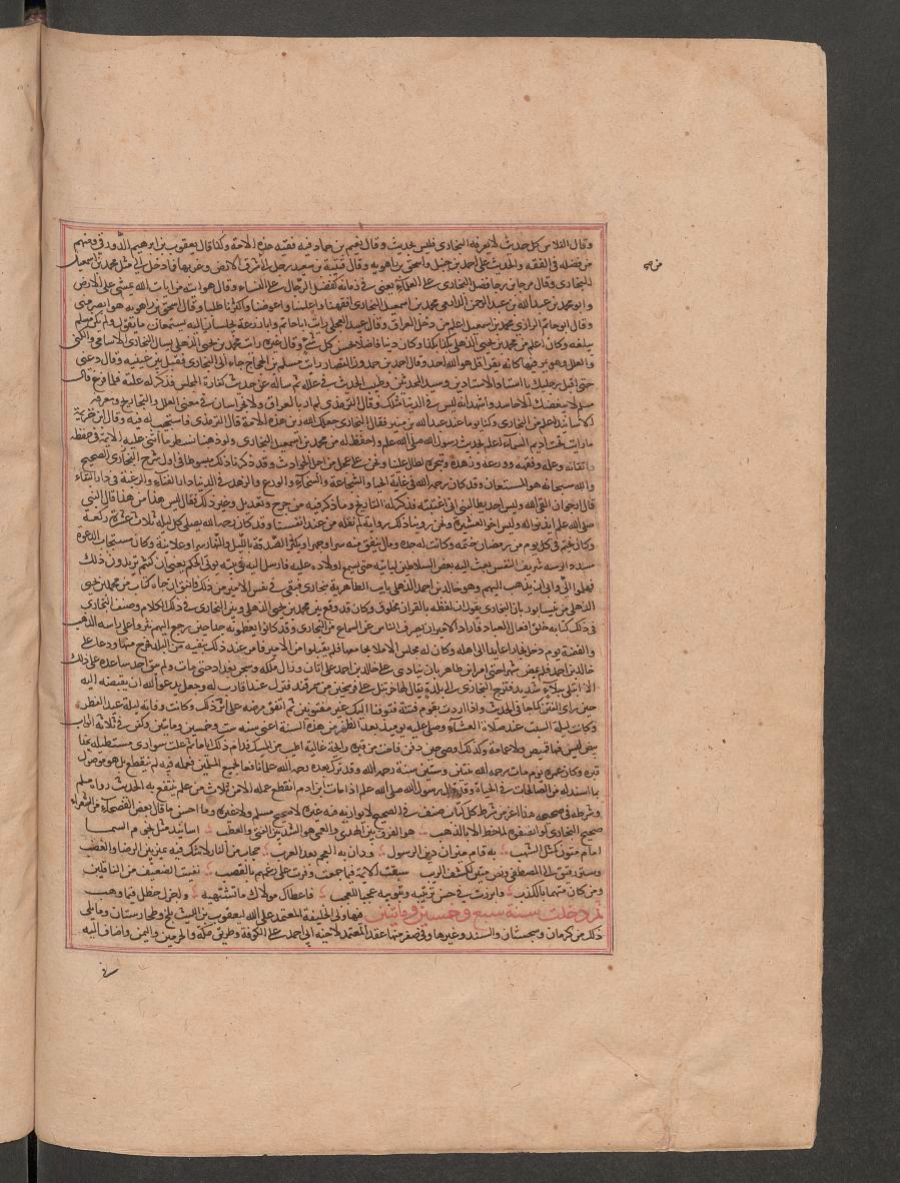 وقال الفلاس كل حديث لا يعرفه البخاري فليس بحديث وقال نعيم بن حماد فيه فقيه هذه الامة وكذا قال يعقوب بن ابرهيم الدورقي ومنهم
من فضله في الفقه والحديث على احمد بن حنبل واسحق بن راهويه وقال قتيبة بن سعيد رحل الي من شرق الارض وغربها فما رحل الي مثل محمد بن اسمعيل
البخاري وقال مرجا بن رجا فضل البخاري على العلماء يعني في زمانه كفضل الرجال على النساء وقال هو اية من ايات الله يمشي على الارض
وابو محمد بن عبد الله بن عبد الرحمن الدارمي محمد بن اسمعيل البخاري افقهنا واعلمنا واغوصنا واكثرنا طلبا وقال اسحق بن راهويه هو ابصر مني
وقال ابو حاتم الرازي محمد بن اسمعيل اعلم من دخل العراق وقال عبيد العجلي رايت ابا حاتم وابا زرعة يجلسان اليه يستمعان ما يقول ولم يكن مسلم
يبلغه وكان اعلم من محمد بن يحيى الذهلي بكذا وكذا وكان دينا فاضلا يحسن كل شي وقال غيره رايت محمد بن يحيى الذهلي يسال البخاري عن الاسامي والكنى
والعلل وهو يمر فيها كانه يقرا قل هو الله احد وقال احمد بن حمدون القصار رايت مسلم بن الحجاج جاء الى البخاري فقبل بين عينيه وقال دعني
حتى اقبل رجليك يا استاذ الاستاذين وسيد المحدثين وطبيب الحديث في علله ثم ساله عن حديث كفارة المجلس فذكر له علته فلما فرغ قال
مسلم لا يبغضك الا حاسد واشهد انه ليس في الدنيا مثلك وقال الترمذي لم ار بالعراق ولا بخراسان في معنى العلل والتاريخ ومعرفه
الاسانيد اعلم من البخاري وكنا يوما عند عبد الله بن منير فقال للبخاري جعلك الله زين هذه الامة قال الترمذي فاستجيب له فيه وقال ابن خزيمة
ما رايت تحت اديم السماء اعلم بحديث رسول الله صلى الله عليه واحفظ له من محمد بن اسمعيل البخاري ولو ذهبنا نسطر ما اثنى عليه الايمة في حفظه
واتقانه وعلمه وفقهه وورعه وزهده وتبحره لطال علينا ونحن على عجل من اجل الحوادث وقد ذكرنا ذلك مبسوطا في اول شرح البخاري الصحيح
والله سبحانه هو المستعان وقد كان رحمه الله في غاية الحيا والشجاعة والسخاء والورع والزهد في الدنيا دار الفناء والرغبة في دار البقاء
قال ارجو ان القى الله وليس احد يطالبني اني اغتبته فذكر له التاريخ وما ذكر فيه من جرح وتعديل وغير ذلك فقال ليس هذا من هذا قال النبي
صلى الله عليه ايذنوا له وليس اخو العشيرة ونحن روينا ذلك رواية لم نقله من عند انفسنا وقد كان رحمه الله يصلي كل ليلة ثلاث عشرة ركعة
وكان يختم في كل يوم من رمضان ختمه وكانت له جده ومال ينفق منه سرا وجهرا ويكثر الصدقة بالليل والنهار سرا وعلانية وكان مستجاب الدعوة
مسدد الرميه شريف النفس بعث اليه بعض السلاطين لياتيه حتى يسمع اولاده عليه فارسل اليه في بيته يوتى الحكم يعني ان كنتم تريدون ذلك
فهلموا الي وابى ان يذهب اليهم وهو خالد بن احمد الذهلي نايب الطاهرية ببخاري فبقي في نفس الامير من ذلك فاتفق ان جاه كتاب من محمد بن يحيى
الذهلي من نيسابور بان البخاري يقول ان لفظه بالقران مخلوق وكان قد وقع بين محمد بن يحيى الذهلي وبين البخاري في ذلك الكلام وصنف البخاري
في ذلك كتابه خلق افعال العباد فاراد الامير ان يصرف الناس عن السماع من البخاري وقد كانوا يعظمونه جدا حين رجع اليهم نثروا على راسه الذهب
والفضة يوم دخل بخارا عايدا الى اهله وكان له مجلس الاملا بجامعها فلم يقبلوا من الامير فامر عند ذلك بنفيه من البلد فخرج منها ودعا على
خالد بن احمد فلم يمض شهر حتى امر ابن طاهر بان ينادي على خالد بن احمد على اتان وزال ملكه وسجن ببغداد حتى مات ولم يبق احد ساعده على ذلك
الا ابتلي ببلاء شديد فنزح البخاري الى بلدة يقال لها خرتنك على فرسخين من سمرقند فنزل عند اقارب له وجعل يدعو الله ان يقبضه اليه
حين راى الفتن كما جا في الحديث واذا اردت بقوم فتنة فتوفنا اليك غير مفتونين ثم اتفق مرضه على اثر ذلك وكانت وفاته ليلة عيد الفطر
وكانت ليلة السبت عند صلاة العشاء وصلي عليه يوم العيد بعد الظهر من هذه السنة اعني سنة ست وخمسين ومايتين وكفن في ثلاثة اثواب
بيض ليس فيها قميص ولا عمامة وكذلك اوصى وحين دفن فاحت من قبره رايحة غالية اطيب من المسك فدام ذلك اياما ثم علت سواري مستطيلة بحذا
قبره وكان عمره يوم مات رحمه الله ثنتين وستين سنة رحمه الله وقد ترك بعده رحمه الله علما نافعا لجميع المسلمين فعمله فيه لم ينقطع بل هو موصول
بما اسداه من الصالحات في الحياة وقد قال رسول الله صلى الله عليه اذا مات ابن ادم انقطع عمله الا من ثلاث من علم ينتفع به الحديث رواه مسلم
وشرطه في صحيحه هذا اعز من شرط كل كتاب صنف في الصحيح لا يوازيه فيه غيره لا صحيح مسلم ولا غيره وما احسن ما قال بعض الفصحاء من الشعراء
صحيح البخاري لو انصفوه لما خط الا بالذهب هو الفرق بين الهدى والعمى هو السد بين الفتى والعطب اسانيد مثل نجوم السما
امام متون كمثل الشهب به قام ميزان دين الرسول ودان به العجم بعد العرب حجاب من النار لا شك فيه يميز بين الرضا والغضب
وستر رقيق الى المصطفى ونص مبين لكشف الريب سبقت الايمة فيما جمعت وفزت على رغمهم بالقصب نفيت الضعيف من الناقلين
ومن كان متهما بالكذب وابرزت في حسن ترتيبه وتبويبه عجبا للعجب فاعطاك مولاك ما تشتهيه واجزل حظك فيما وهب
ثم دخلت سنة سبع وخمسين ومايتين فيها ولى الخليفة المعتمد على الله ليعقوب بن الليث بلخ وطخارستان وما يلي
ذلك من كرمان وسجستان والسند وغيرها وفي صفر منها عقد المعتمد لاخيه ابي احمد على الكوفة وطريق مكة والحرمين واليمن واضاف اليه